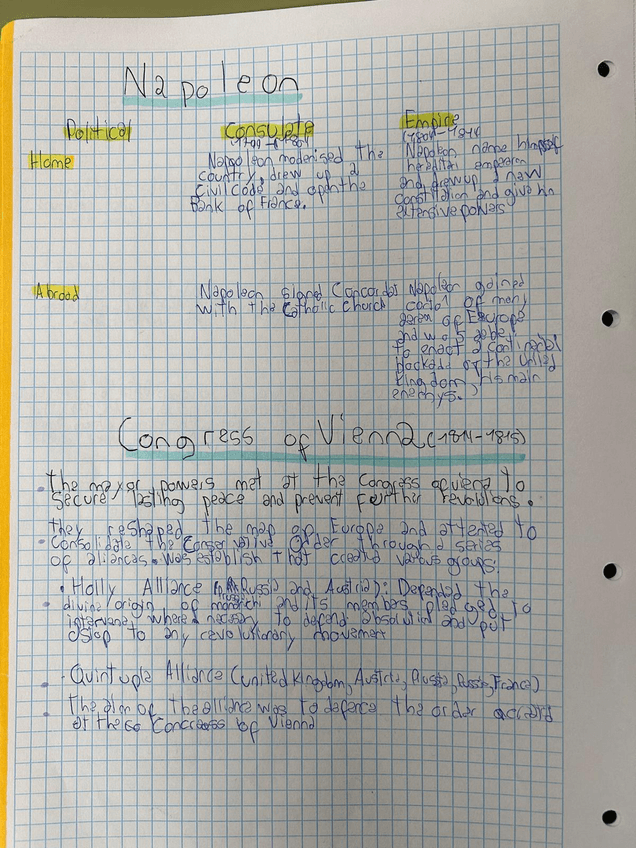 Napoleon
Political Consulate Empire
(1799-1804) (1804-1814)
Home
Napoleon modernised the
country, drew up a
Civil Code and open the
Bank of France.
Napoleon name himself
hereditari emperaen
and drew up a new
constitution and give him
extensive powers
Abroad
Napoleon signed Concordat
with the Catholic Church
Napoleon gained
control of many
areas of Europe
and was able
to enact a continental
blockade of the United
Kingdom, his main
enemys.
Congress of Vienna (1814-1815)
The mayor powers met at the Congress of viena to
secure lasting peace and prevent further revolutions.
they reshaped the map of Europe and attented to
consolidate the Conservative Order through a series
of aliances. Was establish that created various groups.
Holly Alliance (Prussia, Russia and Austria): Defended the
divine origin of monarchi and its members pledged to
intervene where necesary to defend absolutism and put
a stop to any revolutionary movement
Quintuple Alliance (United Kingdom, Austria, Prussia, Russia, France)
The aim of the alliance was to defence the order
at the Congress of Vienna